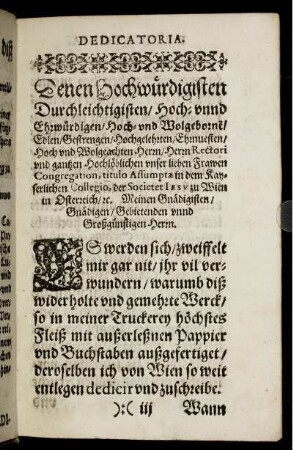 DEDICATORIA.
Denen Hochwürdigisten
Durchleichtigisten/ Hoch- vnnd
Ehrwürdigen/ Hoch- vnd Wolgebornē/
Edlen/ Gestrengen/ Hochgelehrten/ Ehrnuesten/
Hoch vnd Wolgeachten Herrn/ Herrn Rectori
vnd gantzen Hochlöblichen vnser lieben Frawen
Congregation, titulo Assumptæ in dem Kay-
serlichen Collegio, der Societet Iesv zu Wien
in Osterreich/ ec. Meinen Gnädigisten/
Gnädigen/ Gebietenden vnnd
Großgünstigen Herrn.
ES werden sich/ zweiffelt
mir gar nit/ ihr vil ver-
wundern/ warumb diß
widerholte vnd gemehrte Werck/
so in meiner Truckerey höchstes
Fleiß mit außerleßnen Pappier
vnd Buchstaben außgefertiget/
deroselben ich von Wien so weit
entlegen dedicir vnd zuschreibe.
):( iij Wann